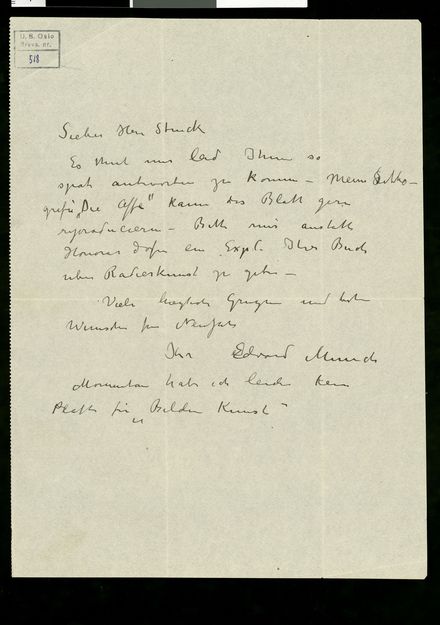 U. B. Oslo
Brevs. nr.
518
Lieber Herr Struck
Es thut mir leid Ihnen so
spät antworten zu können – Meine Litho-
grafie „Die Affe" kann das Blatt gern
reproducieren – Bitte mir anstatt
Honorar dafür ein Expl. Ihres Buch
über Radierkunst zu geben –
Viele herzliche Grüsse und beste
Wünsche für Neujahr
Ihr Edvard Munch
Momentan habe ich leider kein
Platte für „Bildende Kunst"